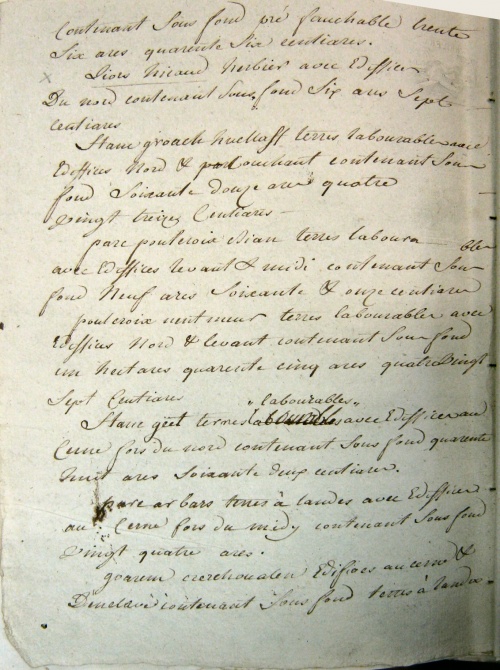 Contenant Sous fond pré fauchable trente
Six ares quarente Six centiares.
Liors herbier avec Ediffices
Du nord contenant Sous fond Six ares Sept
Centiares
Stanc groach huellaff terres labourable avec
Ediffices Nord & Couchant contenant Sous
fond Soixante douze ares quatre
vingt treize Centiares -
parc poulcroix edian terres laboura - ble
avec Ediffices levant & midi contenant Sous
fond Neuf ares Soixante & onze centiares
poulcroix nent meur terres labourables avec
Ediffices Nord & levant contenant Sous fond
un hectares quarente cinq ares quatre vingt
Sept Centiares " labourables "
Stanc terres avec Ediffices au
Cerne fors du nord contenant Sous fond quarente
huit ares Soixante deux centiares.
parc ar bars terres à landes avec Ediffices
au Cerne fors du midy contenant Sous fond
vingt quatre ares.
goarem Edifices au cerne &
D'enclave contenant Sous fond terres à landes